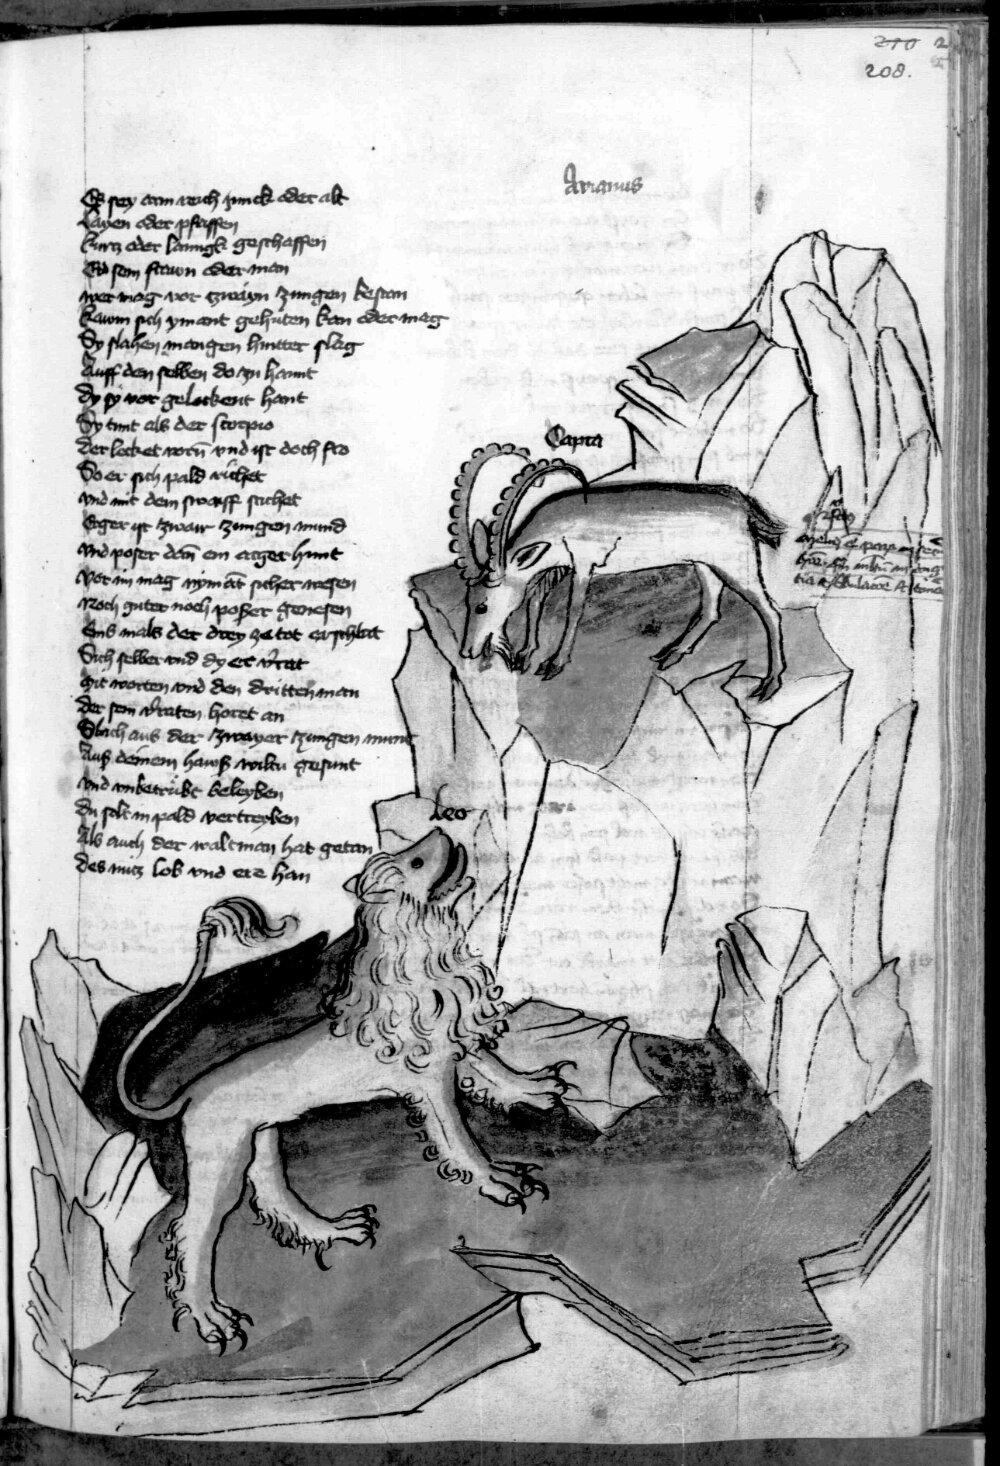 210
208.
Arianus
Es sey arm reich junck oder alt
Layen oder pfaffen
kurtz oder lanngk geschaffen
Es sein frawn oder man
wer mag vor zwayn zungen bestan
kawm sich ymant gehuten kan oder mag
Sy slahen mangen hintter slag
Auff den selben do yn hannt
dy sy vor gelockent hant
Sy tunt als der scorpio
der locket vorn vnd ist doch fro
So er sich pald richet
vnd mit dem swantz stichet
Erger ist zwair zungen mund
vnd poser dann ein arger hunt
Vor im mag nymant sicher wesen
Noch guter noch poser genesen
Eins mals der drey ze tot erschlat
Sich selber vnd dy er verrat
Mit worten vnd den dritten man
der sein verraten horet an
Slach aus der zwayer zungen munt
Aus deinem haws wiltu gesunt
vnd vnbetrubt beleyben
du solt in pald vertreyben
Als auch der waltman hat getan
des mus lob vnd ere han
Capra
Leo